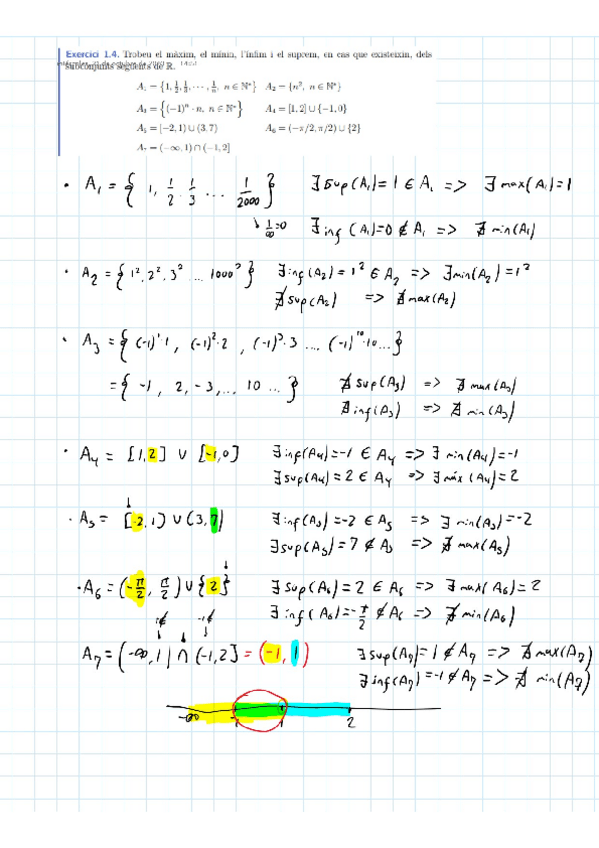 Exercici 1.4. Trobeu el màxim, el mínim, l'ínfim i el suprem, en cas que existeixin, dels
subconjunts següents de ℝ.
A₁ = {1, 1/2, 1/3, ⋯, 1/n, n ∈ ℕ*} A₂ = {n², n ∈ ℕ*}
A₃ = {(−1)ⁿ · n, n ∈ ℕ*} A₄ = [1, 2] ∪ {−1, 0}
A₅ = [−2, 1) ∪ (3, 7) A₆ = (−π/2, π/2) ∪ {2}
A₇ = (−∞, 1) ∩ (−1, 2]
• A₁ = { 1, 1/2 · 1/3 ... 1/2000 } ∃ Sup(A₁) = 1 ∈ A₁ => ∃ max(A₁) = 1
↳ 1/∞ = 0 ∃ inf (A₁) = 0 ∉ A₁ => ∄ min(A₁)
• A₂ = { 1², 2², 3² ... 1000² } ∃ inf(A₂) = 1² ∈ A₂ => ∃ min(A₂) = 1²
∄ Sup(A₂) => ∄ max(A₂)
• A₃ = { (-1)¹·1, (-1)²·2, (-1)³·3 ... (-1)¹⁰·10 ... }
= { -1, 2, -3, ... 10 ... } ∄ Sup(A₃) => ∄ max(A₃)
∄ inf(A₃) => ∄ min(A₃)
• A₄ = [1,2] ∪ [-1,0] ∃ inf(A₄) = -1 ∈ A₄ => ∃ min(A₄) = -1
∃ sup(A₄) = 2 ∈ A₄ => ∃ máx (A₄) = 2
• A₅ = [-2,1) ∪ (3,7) ∃ inf(A₅) = -2 ∈ A₅ => ∃ min(A₅) = -2
∃ sup(A₅) = 7 ∉ A₅ => ∄ max(A₅)
• A₆ = (-π/2, π/2) ∪ {2} ∃ sup(A₆) = 2 ∈ A₆ => ∃ max(A₆) = 2
∃ inf (A₆) = -π/2 ∉ A₆ => ∄ min(A₆)
A₇ = (-∞, 1) ∩ (-1, 2] = (-1, 1) ∃ sup(A₇) = 1 ∉ A₇ => ∄ max(A₇)
∃ inf(A₇) = -1 ∉ A₇ => ∄ min(A₇)
-∞ -1 1 2